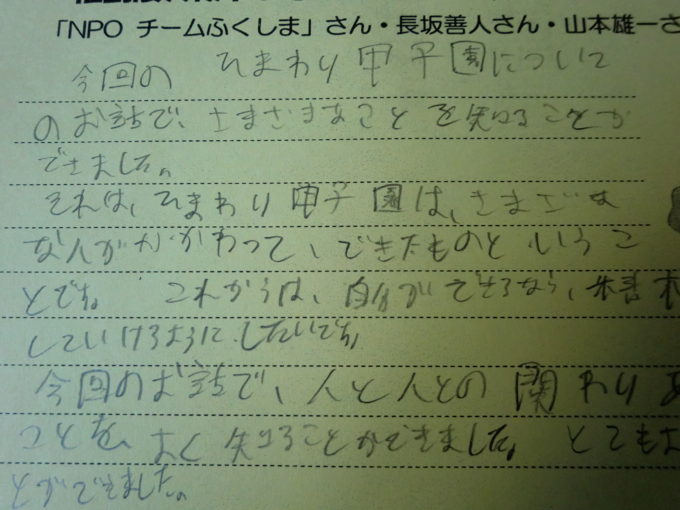 「NPO チームふくしま」さん・長坂善人さん・山本雄一さ
今回の ひまわり甲子園について
のお話で、さまざまなことを知ることが
できました。
それは、ひまわり甲子園は、さまざま
な人がかかわって、できたものというこ
とです。 これからは、自分ができるなら、
していけるようにしたいです。
今回のお話で、人と人との関わりあ
ことを、よく知ることができました。とてもよ
とができました。